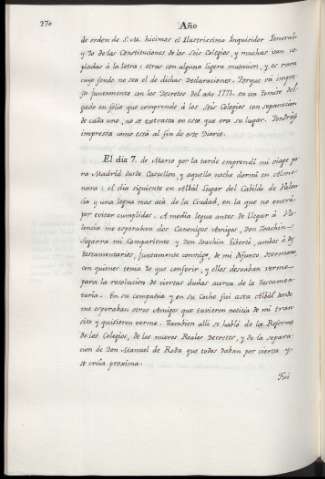 274
Año
de orden de S. M. hicimos el Ilustrisimo Inquisidor General
y Yo de las Constituciones de los Seis Colegios, y muchas van co-
piadas à la letra: otras con alguna ligera mutacion, y es rara
cuyo fondo no sea el de dichas Declaraciones. Porque và impre-
sa juntamente con los Decretos del año 1771. en un tomito del-
gado en folio que comprende à los Seis Colegios con separacion
de cada uno, no se extracta en este que era su lugar. Pondràse
impresa como està al fin de este Diario.
El dia 7. de Marzo por la tarde emprendì mi viage pa-
ra Madrid desde Castellon, y aquella noche dormì en Alme-
nara: el dia siguiente en Albal Lugar del Cabildo de Valen-
cia y una legua mas acà de la Ciudad, en la que no entrè
por evitar cumplidos. A media legua antes de llegar à Va-
lencia me esperaban dos Canonigos Amigos, Don Joachin
Segarra mi Compariente y Don Joachin Gibertò, ambos à dos
Testamentarios, juntamente conmigo, de mi Difunto Hermano,
con quienes tenia de que conferir, y ellos deseaban verme
para la resolucion de ciertas dudas acerca de la Testamen-
taria. En su compañia y en su Coche fui asta Albàl donde
me esperaban otros Amigos que tuvieron noticia de mi tran-
sito y quisieron verme. Tambien alli se hablò de la Reforma
de los Colegios, de los nuevos Reales Decretos, y de la separa-
cion de Don Manuel de Roda que todos daban por cierta y
se creìa proxima.
Fui